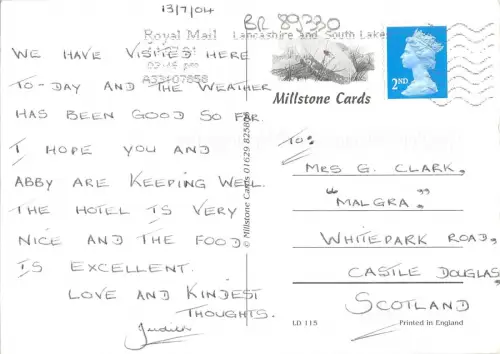 13/7/04
BR 89330
Royal Mail
Lancashire and South Lakes
WE HAVE VISITED HERE
TO-DAY AND THE WEATHER
A33407858
HAS BEEN GOOD SO FAR.
I HOPE YOU AND
ABBY ARE KEEPING WELL.
THE HOTEL IS VERY
NICE AND THE FOOD
IS EXCELLENT.
LOVE AND KINDEST
THOUGHTS.
Judith
2ND
Millstone Cards
© Millstone Cards 01629
TO:
MRS G. CLARK,
"MALGRA",
WHITEPARK ROAD,
CASTLE DOUGLAS,
SCOTLAND
LD 115
Printed in England